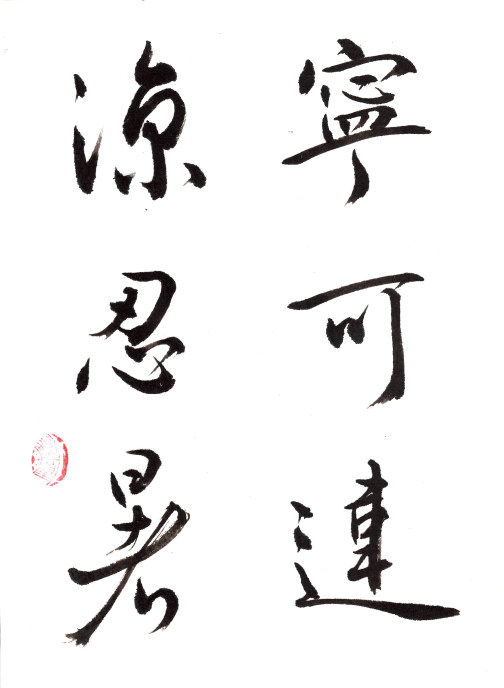 寧可連
涼忍暑